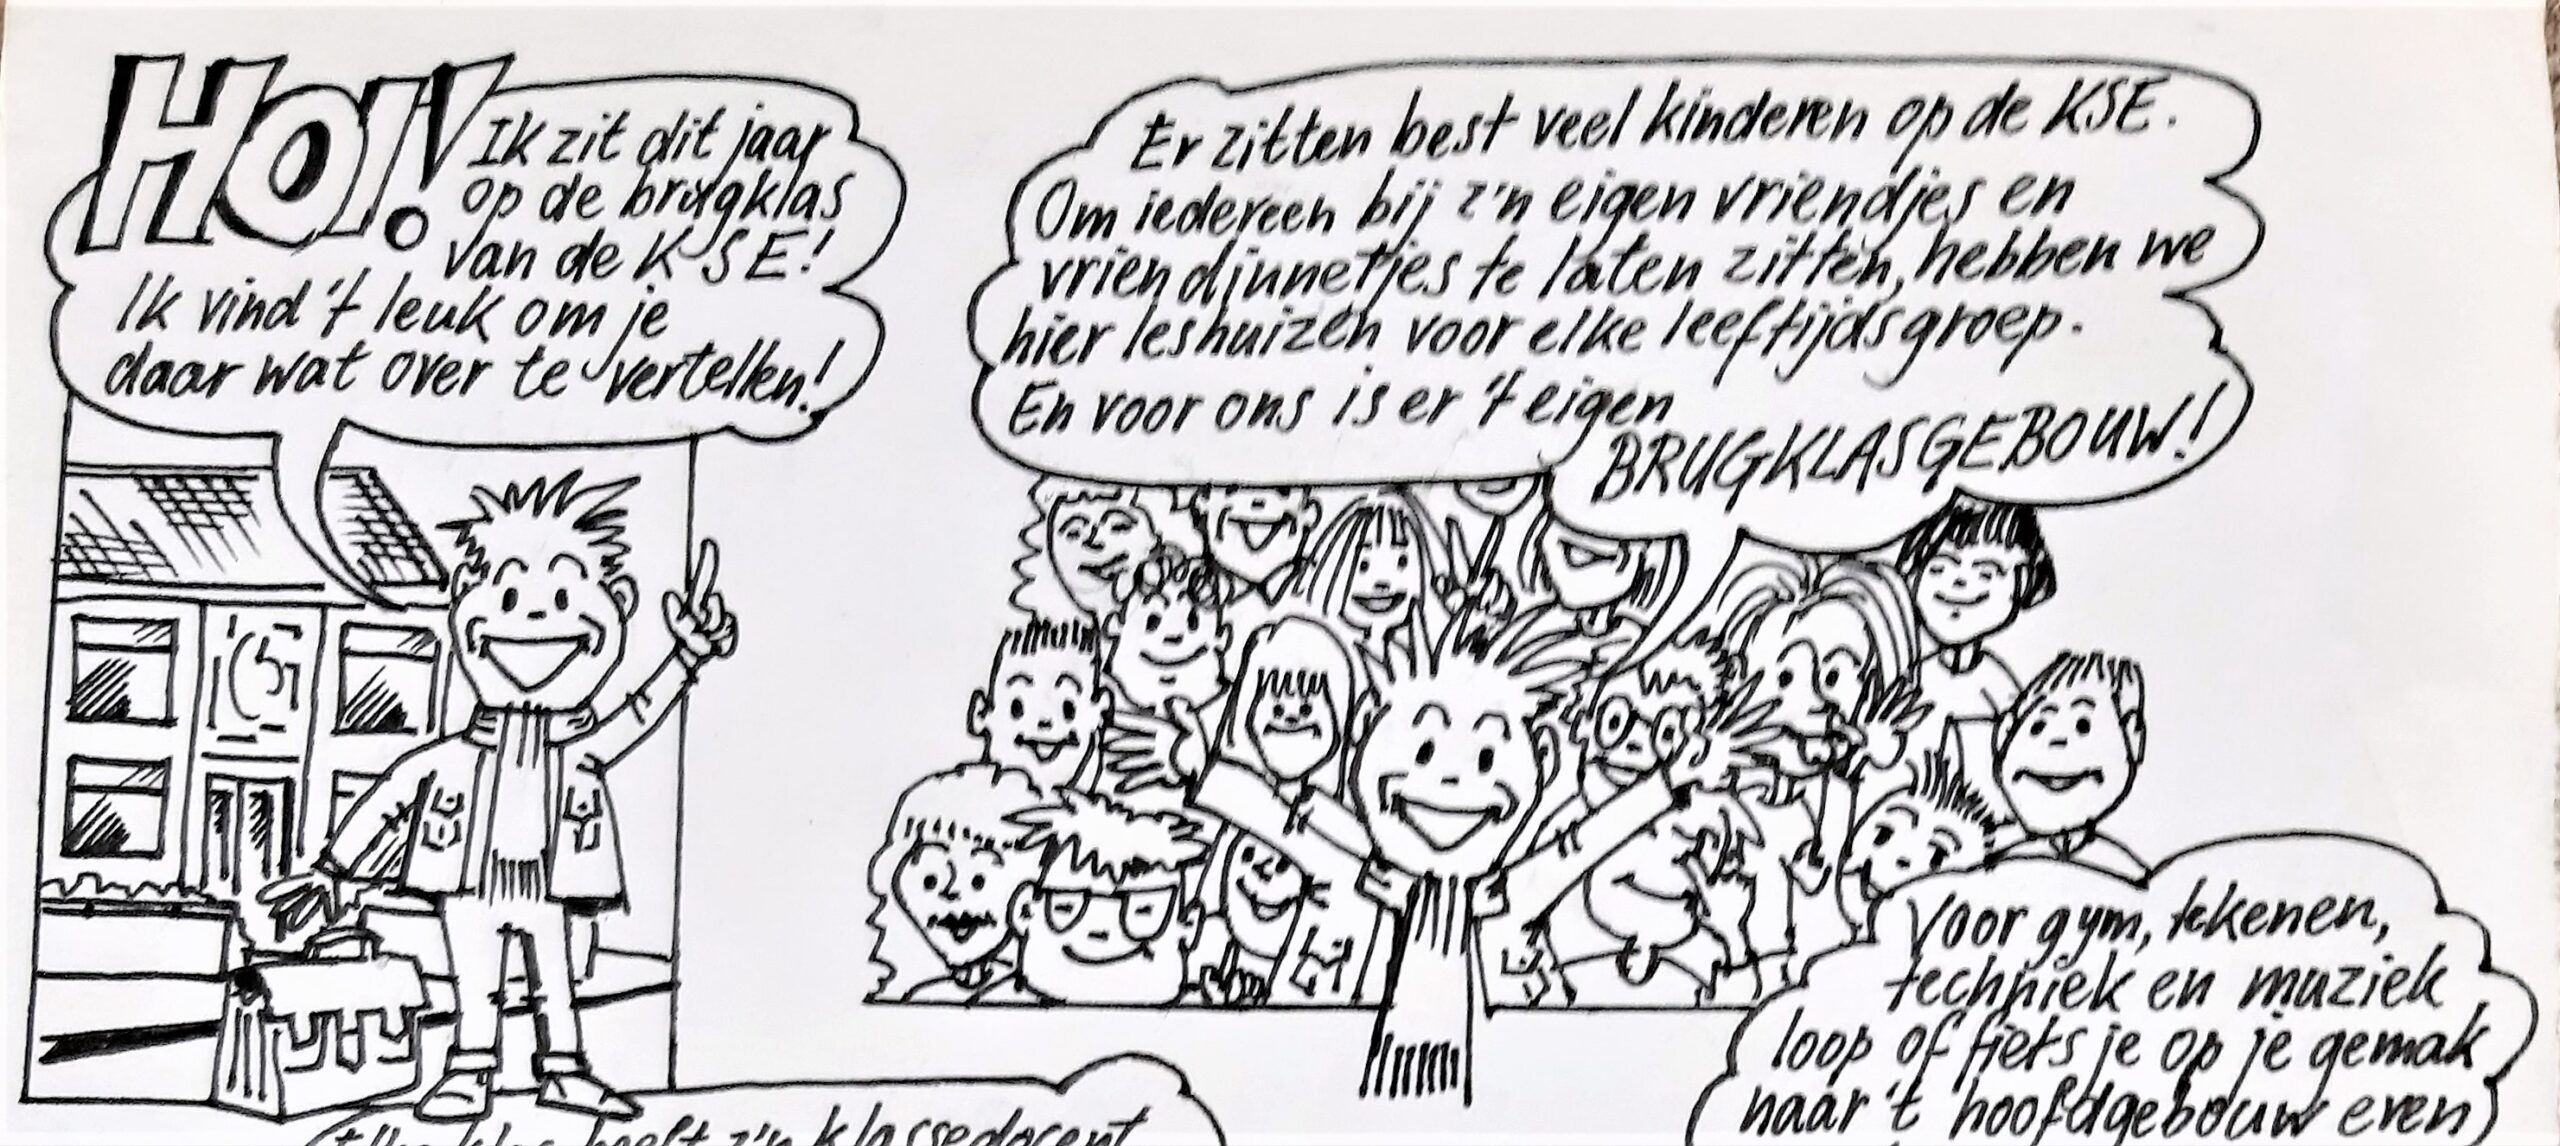 HOI!
Ik zit dit jaar
op de brugklas
van de KSE!
Ik vind 't leuk om je
daar wat over te vertellen!
Er zitten best veel kinderen op de KSE.
Om iedereen bij z'n eigen vriendjes en
vriendinnetjes te laten zitten, hebben we
hier leshuizen voor elke leeftijdsgroep.
En voor ons is er 't eigen
BRUGKLASGEBOUW!
Voor gym, tekenen,
techniek en muziek
loop of fiets je op je gemak
naar 't hoofdgebouw even
Elke klas heeft z'n klassedocent